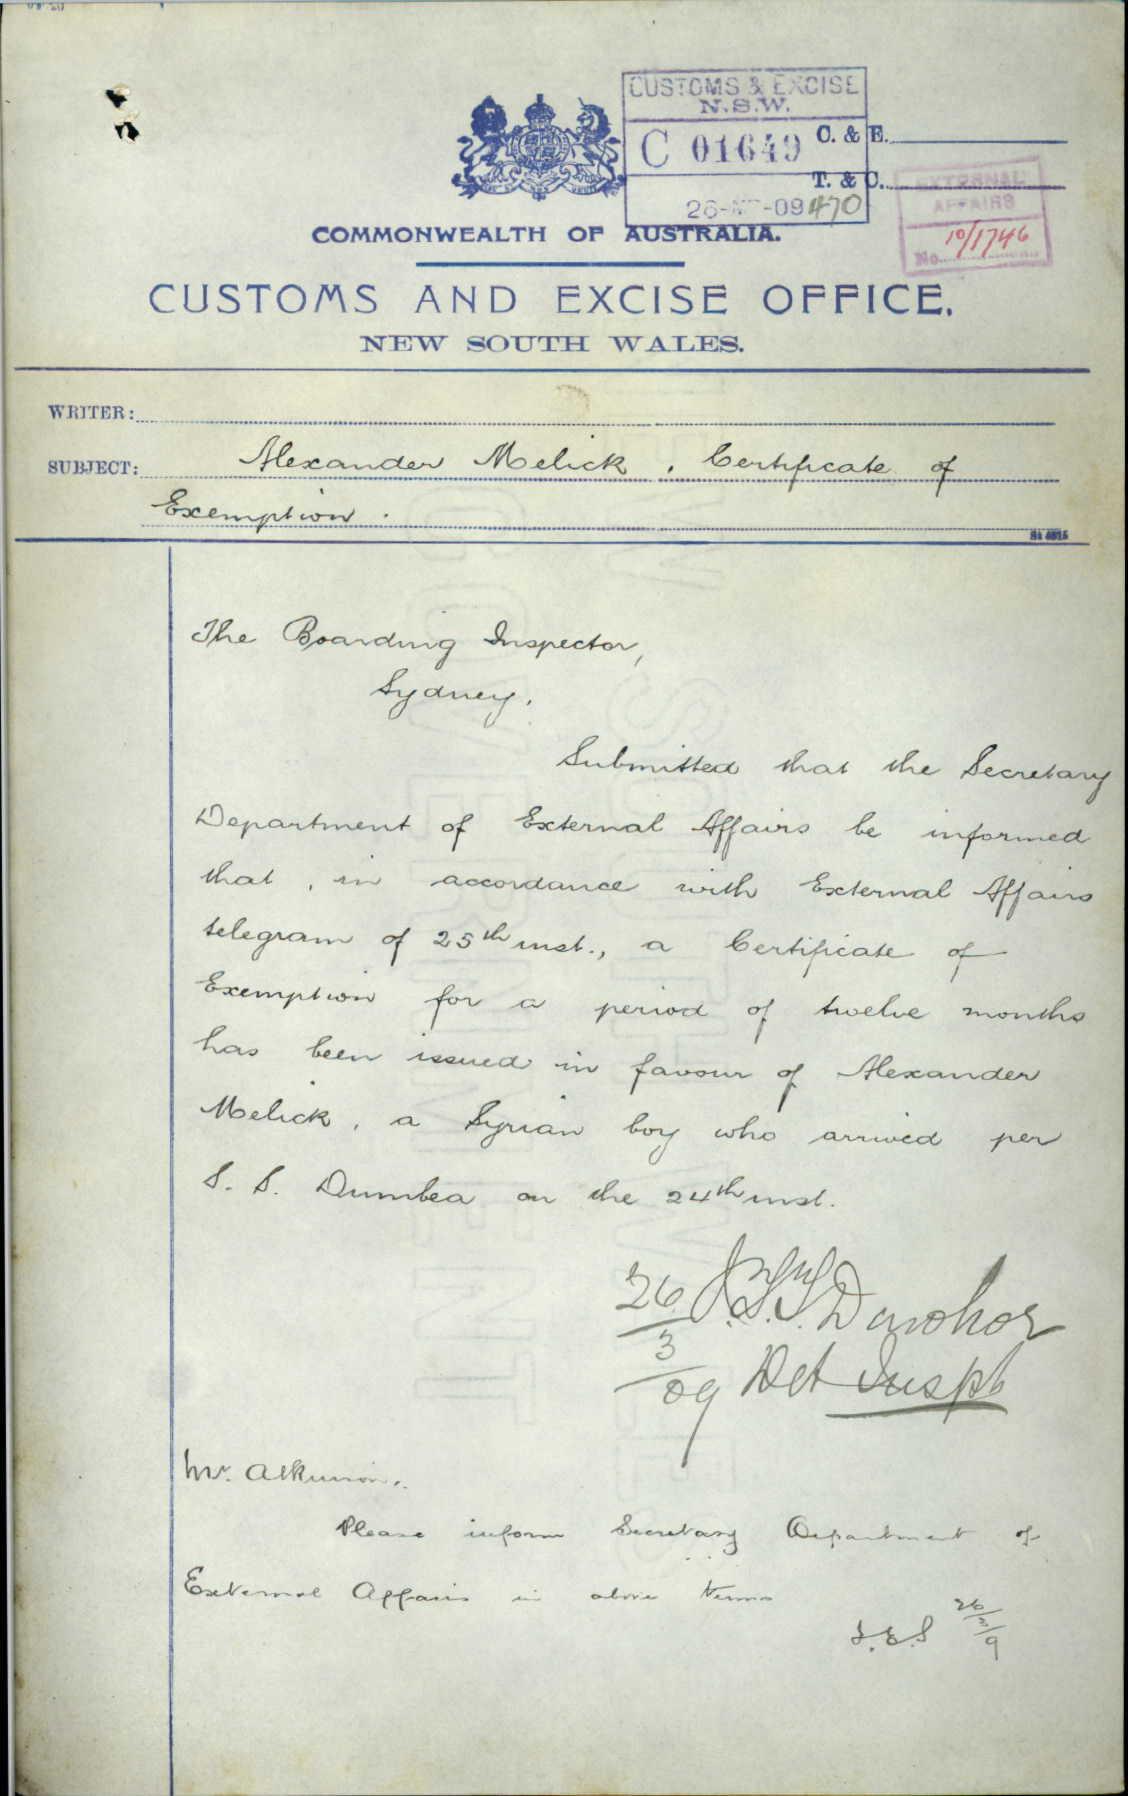 CUSTOMS & EXCISE
N.S.W.
C 01649
C. & E.
T. & C.
26- -09
470
EXTERNAL
AFFAIRS
No. 10/1746
COMMONWEALTH OF AUSTRALIA.
CUSTOMS AND EXCISE OFFICE,
NEW SOUTH WALES.
WRITER:
SUBJECT: Alexander Melick, Certificate of
Exemption.
The Boarding Inspector,
Sydney.
Submitted that the Secretary
Department of External Affairs be informed
that, in accordance with External Affairs
telegram of 25th inst., a Certificate of
Exemption for a period of twelve months
has been issued in favour of Alexander
Melick, a Syrian boy who arrived per
S. S. Dumbea on the 24th inst.
26/3/09
Donohoe
Det Inspt
Mr. Atkinson.
Please inform Secretary Department of
External Affairs in above terms
26/3/9